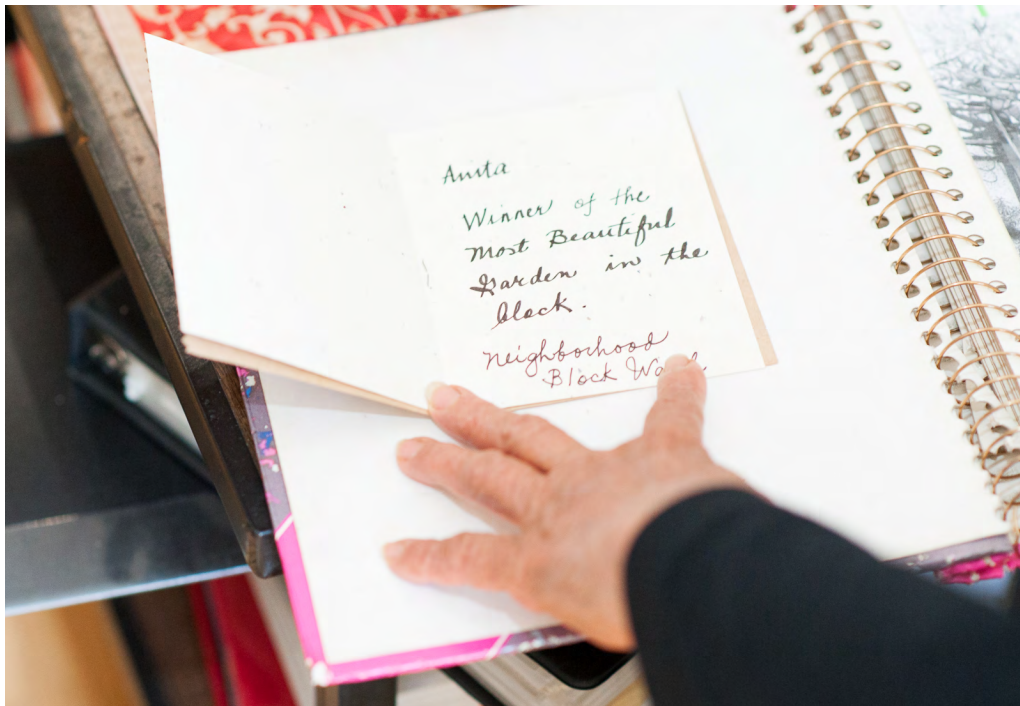 Anita
Winner of the
Most Beautiful
Garden in the
block.
Neighborhood
Block